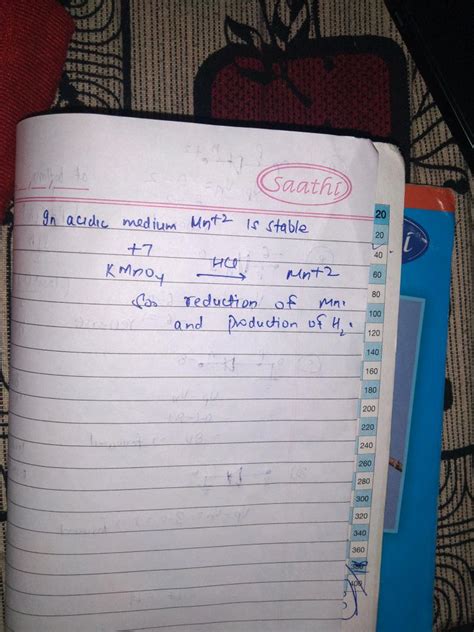 Saathi
In acidic medium Mn+2 is stable
+7 HCl
KMnO4 → Mn+2
for reduction of Mn.
and production of H2.
20
20
40
60
80
100
120
140
160
180
200
220
240
260
280
300
320
340
360
400